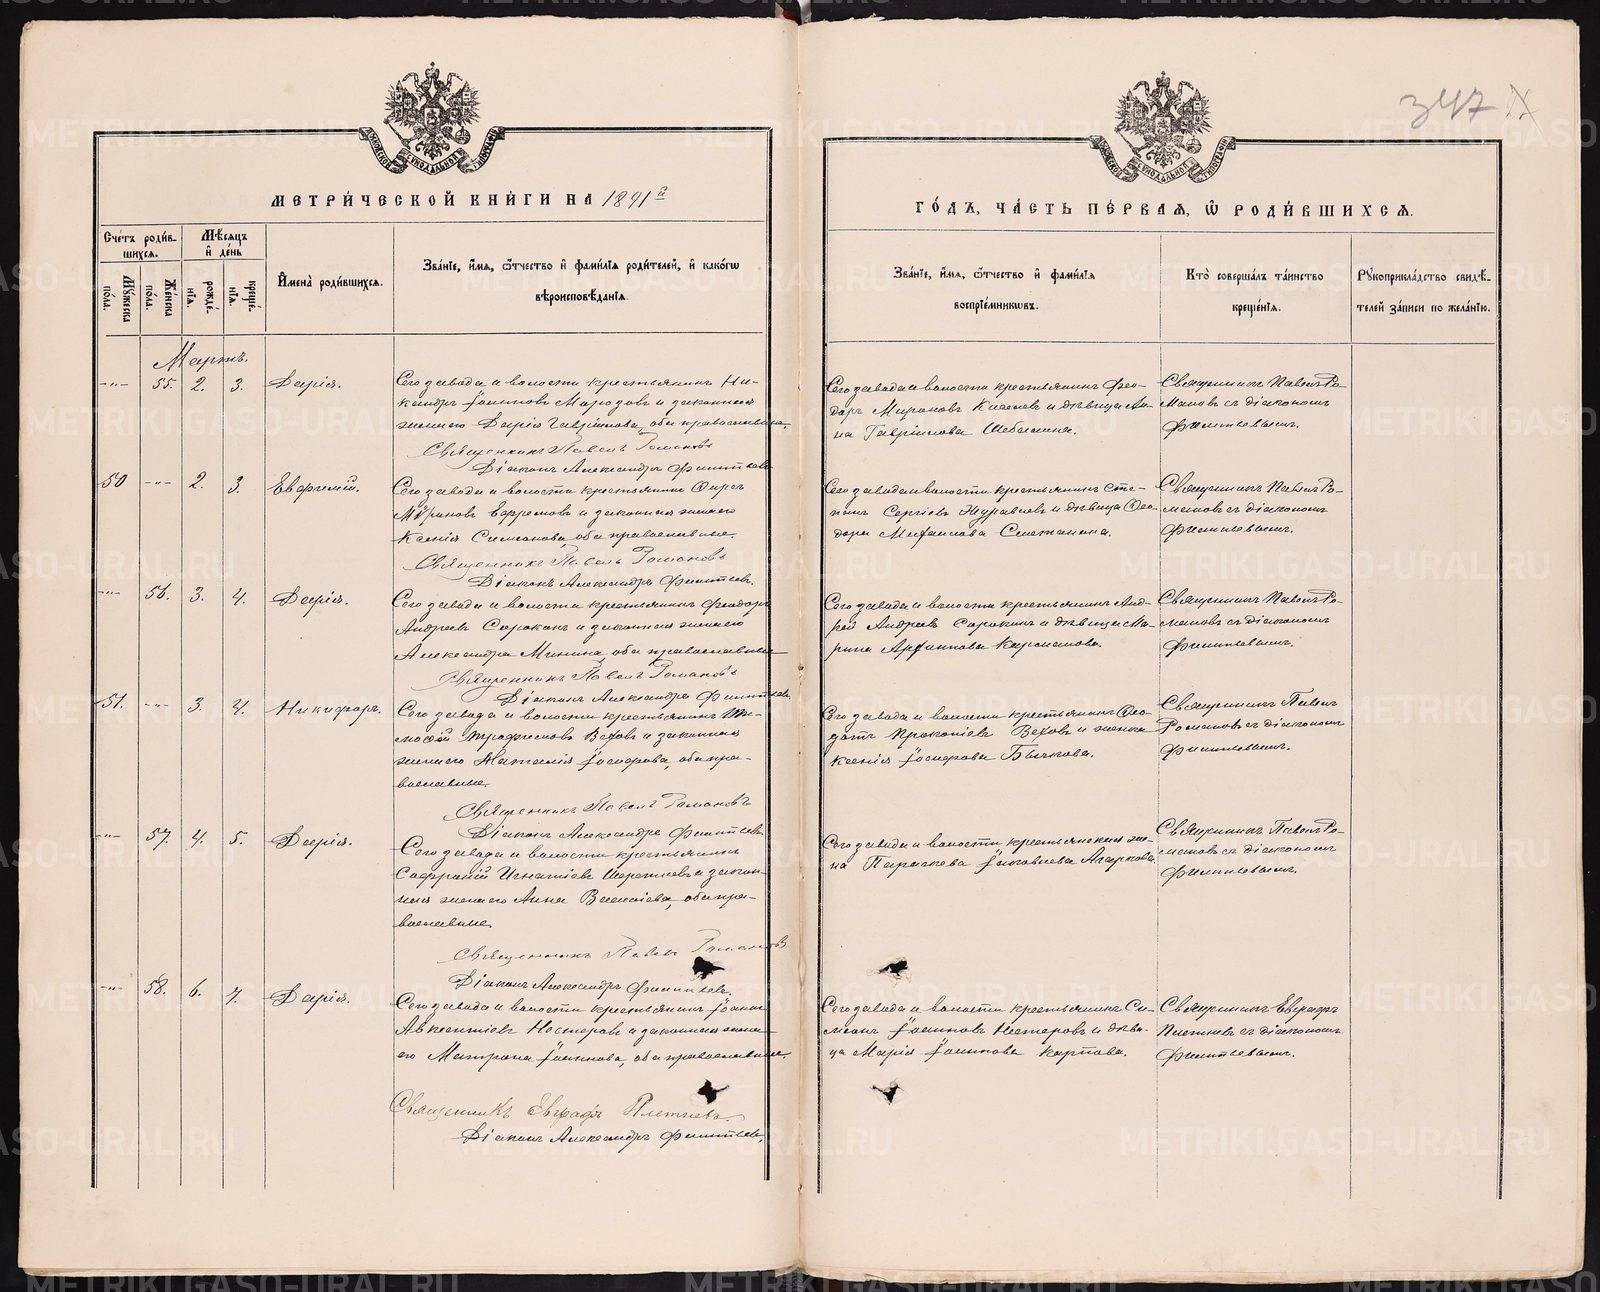 347
МЕТРИ́ЧЕСКОЙ КНИ́ГИ НА 1891й
ГО́ДЪ, ЧА́СТЬ ПЕ́РВАЯ, Ѡ РОДИ́ВШИХСЯ.
Сче́тъ роди́в-
шихся.
Мѣ́сяцъ
и де́нь
Му́жеска
по́ла.
Же́нска
по́ла.
рожде́-
нія.
креще́-
нія.
Имена̀ роди́вшихся.
Зва́ніе, и́мя, ѻ́тчество и фами́лія роди́телей, и како́гѡ
вѣроисповѣ́данія.
Зва́ніе, и́мя, ѻ́тчество и фами́лія
воспріе́мникѡвъ.
Кто̀ соверша́лъ та́инство
креще́нія.
Рꙋкоприкла́дство свидѣ́-
телей за́писи по жела́нію.
Мартъ.
-"- 55. 2. 3. Дарія.
Сего завода и волости крестьянинъ Ни-
кандръ Іоанновъ и законная
жена его Дарія Гавріилова, оба православные.
Священникъ Павелъ Романовъ
Діаконъ Александръ
Сего завода и волости крестьянинъ Фео-
доръ Мироновъ и дѣвица Ан-
на Гавріилова
Священникъ Павелъ Ро-
мановъ съ діакономъ
50 -"- 2. 3. Евфимій.
Сего завода и волости крестьянинъ
Мѵроновъ Ефремовъ и законная жена его
Ксенія Симеонова, оба православные.
Священникъ Павелъ Романовъ
Діаконъ Александръ
Сего завода и волости крестьянинъ Сте-
панъ Сергіевъ Журавлевъ и дѣвица Ѳео-
дора Михаилова Сметанина.
Священникъ Павелъ Ро-
мановъ съ діакономъ
-"- 56. 3. 4. Дарія.
Сего завода и волости крестьянинъ Феодоръ
Андреевъ Сорокинъ и законная жена его
Александра Минина, оба православные
Священникъ Павелъ Романовъ
Діаконъ Александръ
Сего завода и волости крестьянинъ Анд-
рей Андреевъ Сорокинъ и дѣвица Ма-
рина
Священникъ Павелъ Ро-
мановъ съ діакономъ
51. -"- 3. 4. Никифоръ.
Сего завода и волости крестьянинъ Ти-
моѳей Трофимовъ и законная
жена его Наталія Іосифова, оба пра-
вославные.
Священникъ Павелъ Романовъ
Діаконъ Александръ
Сего завода и волости крестьянинъ Ѳео-
дотъ Прокопіевъ и жена
Ксенія Іосифова Бычкова.
Священникъ Павелъ
Романовъ съ діакономъ
-"- 57. 4. 5. Дарія.
Сего завода и волости крестьянинъ
Софроній Игнатіевъ и закон-
ная жена его Анна Василіева, оба пра-
вославные.
Священникъ Павелъ Романовъ
Діаконъ Александръ
Сего завода и волости крестьянская же-
на Параскева Іаковлева Агаркова.
Священникъ Павелъ Ро-
мановъ съ діакономъ
-"- 58. 6. 7. Дарія.
Сего завода и волости крестьянинъ Іоаннъ
Авксентіевъ Нестеровъ и законная жена
его Матрона Іоаннова, оба православные.
Священникъ Евграфъ Плетневъ
Діаконъ Александръ
Сего завода и волости крестьянинъ Си-
меонъ Іоанновъ Нестеровъ и дѣви-
ца Марія Іоаннова Карпова.
Священникъ Евграфъ
Плетневъ съ діакономъ
METRIKI.GASO-URAL.RU